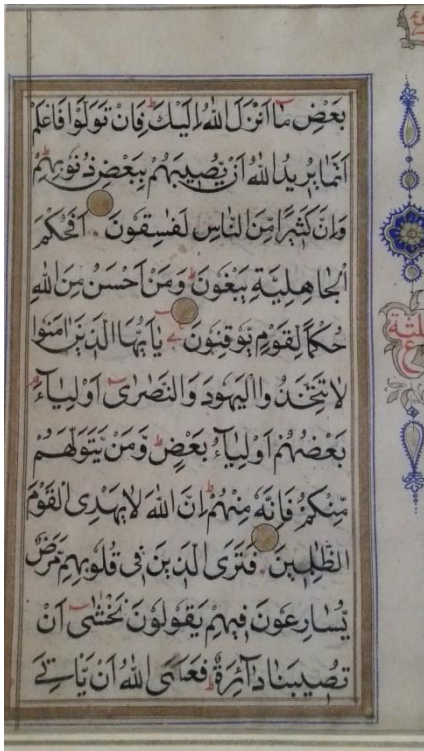 بَعْضِ مَا اَنْزَلَ اللهُ اِلَيْكَ فَاِنْ تَوَلَّوْا فَاعْلَمْ
اَنَّمَا يُرِيْدُ اللهُ اَنْ يُّصِيْبَهُمْ بِبَعْضِ ذُنُوْبِهِمْ
وَاِنَّ كَثِيْرًا مِّنَ النَّاسِ لَفٰسِقُوْنَ اَفَحُكْمَ
الْجَاهِلِيَّةِ يَبْغُوْنَ وَمَنْ اَحْسَنُ مِنَ اللهِ
حُكْمًا لِّقَوْمٍ يُّوْقِنُوْنَ يٰاَيُّهَا الَّذِيْنَ اٰمَنُوْا
لَا تَتَّخِذُوا الْيَهُوْدَ وَالنَّصٰرٰى اَوْلِيَآءَ
بَعْضُهُمْ اَوْلِيَآءُ بَعْضٍ وَّمَنْ يَّتَوَلَّهُمْ
مِّنْكُمْ فَاِنَّهٗ مِنْهُمْ اِنَّ اللهَ لَا يَهْدِى الْقَوْمَ
الظّٰلِمِيْنَ فَتَرَى الَّذِيْنَ فِىْ قُلُوْبِهِمْ مَّرَضٌ
يُّسَارِعُوْنَ فِيْهِمْ يَقُوْلُوْنَ نَخْشٰى اَنْ
تُصِيْبَنَا دَآئِرَةٌ فَعَسَى اللهُ اَنْ يَّاْتِىَ